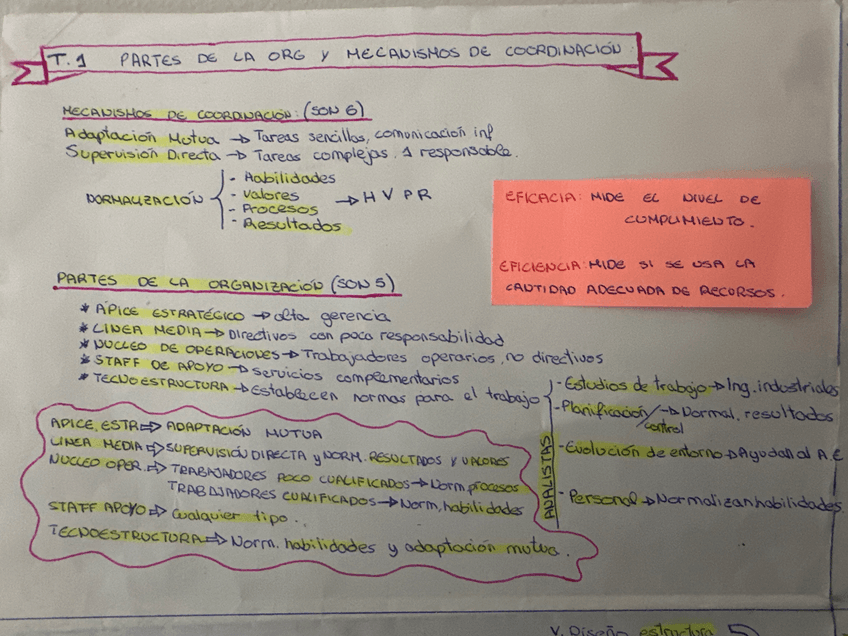 T.1 PARTES DE LA ORG Y MECANISMOS DE COORDINACIÓN
MECANISMOS DE COORDINACIÓN: (SON 6)
Adaptación Mutua → Tareas sencillas, comunicación inf
Supervisión Directa → Tareas complejas, 1 responsable.
NORMALIZACIÓN
- Habilidades
- Valores
- Procesos
- Resultados
→ H V P R
EFICACIA: MIDE EL NIVEL DE
CUMPLIMIENTO.
EFICIENCIA: MIDE SI SE USA LA
CANTIDAD ADECUADA DE RECURSOS.
PARTES DE LA ORGANIZACIÓN (SON 5)
* APICE ESTRATÉGICO → alta gerencia
* LINEA MEDIA → Directivos con poca responsabilidad
* NUCLEO DE OPERACIONES → Trabajadores operarios, no directivos
* STAFF DE APOYO → Servicios complementarios
* TECNOESTRUCTURA → Establecen normas para el trabajo
ANALISTAS
- Estudios de trabajo → Ing. industriales
- Planificación/control → Normal. resultados
- Evolución de entorno → Ayudan al A.E
- Personal → Normalizan habilidades
APICE. ESTR ⇒ ADAPTACIÓN MUTUA
LINEA MEDIA ⇒ SUPERVISIÓN DIRECTA y NORM. RESULTADOS Y VALORES
NUCLEO OPER. ⇒ TRABAJADORES POCO CUALIFICADOS → Norm, procesos
TRABAJADORES CUALIFICADOS → Norm, habilidades
STAFF APOYO ⇒ Cualquier tipo..
TECNOESTRUCTURA ⇒ Norm. habilidades y adaptación mutua.
V. Diseño estructura